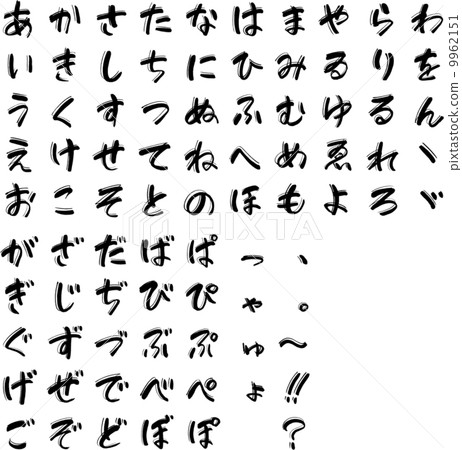 あ か さ た な は ま や ら わ
い き し ち に ひ み ゐ り を
う く す つ ぬ ふ む ゆ る ん
え け せ て ね へ め ゑ れ ヽ
お こ そ と の ほ も よ ろ ゞ
が ざ だ ば ぱ っ 、
ぎ じ ぢ び ぴ ゃ 。
ぐ ず づ ぶ ぷ ゅ 〜
げ ぜ で べ ぺ ょ !!
ご ぞ ど ぼ ぽ ?
PIXTA
pixtastock.com - 9962151